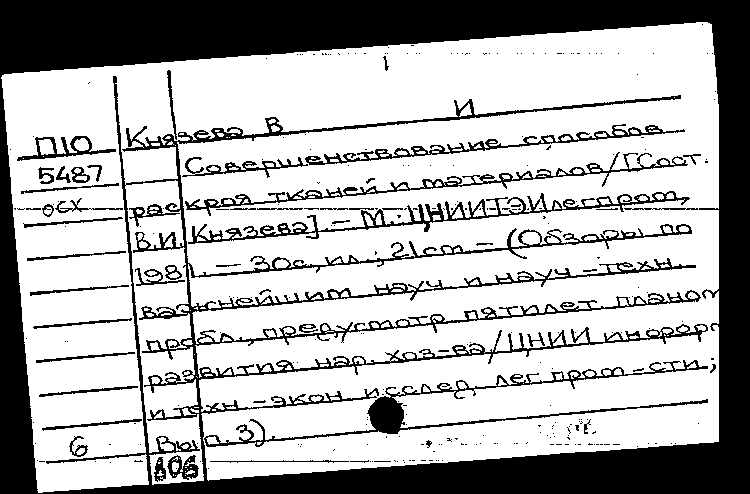 П10 Князева, В И
5487 Совершенствование способов
осх раскроя тканей и материалов/[Сост.
В.И. Князева]. – М.: ЦНИИТЭИлегпром,
1981. – 30с, ил.; 21cm – (Обзоры по
важнейшим науч. и науч-техн.
пробл., предусмотр пятилет планом
развития нар. хоз-ва/ЦНИИ информ
и техн-экон исслед. лег пром-сти;
6 Вып. 3).
606